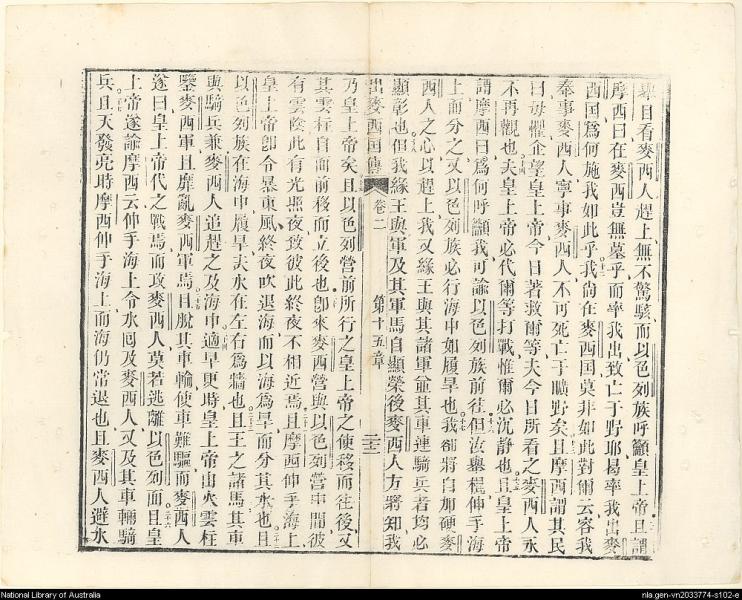 舉目看麥西人趕上無不驚駭而以色列族呼籲皇上帝且謂
摩西曰在麥西豈無墓乎而率我出致亡于野耶曷率我出麥
西国爲何施我如此乎我尚在麥西国莫非如此對爾云容我
奉事麥西人寧事麥西人不可死亡于曠野矣且摩西謂其民
曰毋懼企望皇上帝今日著救爾等夫今日所看之麥西人永
不再觀也夫皇上帝必代爾等打戰惟爾必沉静也且皇上帝
謂摩西曰爲何呼籲我可諭以色列族前往但汝舉棍伸手海
上而分之又以色列族必行海中如履旱也我卻將自加硬麥
西人之心以趕上我又緣王與其諸軍並其車連騎兵者均必
顯彰也但我緣王與軍及其軍馬自顯榮後麥西人方將知我
出麥西国傳 卷二 第十五章 二十二
乃皇上帝矣且以色列營前所行之皇上帝之使移而往後又
其雲柱自面前移而立後也卽來麥西營與以色列營中間彼
有雲陰此有光照夜致彼此終夜不相近焉且摩西伸手海上
皇上帝卽令暴東風終夜吹退海而以海爲旱而分其水也且
以色列族在海中履旱夫水在左右爲牆也且王之諸馬其車
與騎兵兼麥西人追趕之及海中適早更時皇上帝由火雲柱
鑒麥西軍且靡亂麥西軍焉且脫其車輪使車難驅而麥西人
遂曰皇上帝代之戰焉而攻麥西人莫若逃離以色列面且皇
上帝遂諭摩西云伸手海上令水囘及麥西人又及其車輛騎
兵且天發亮時摩西伸手海上而海仍常退也且麥西人避水
National Library of Australia
nla.gen-vn2033774-s102-e